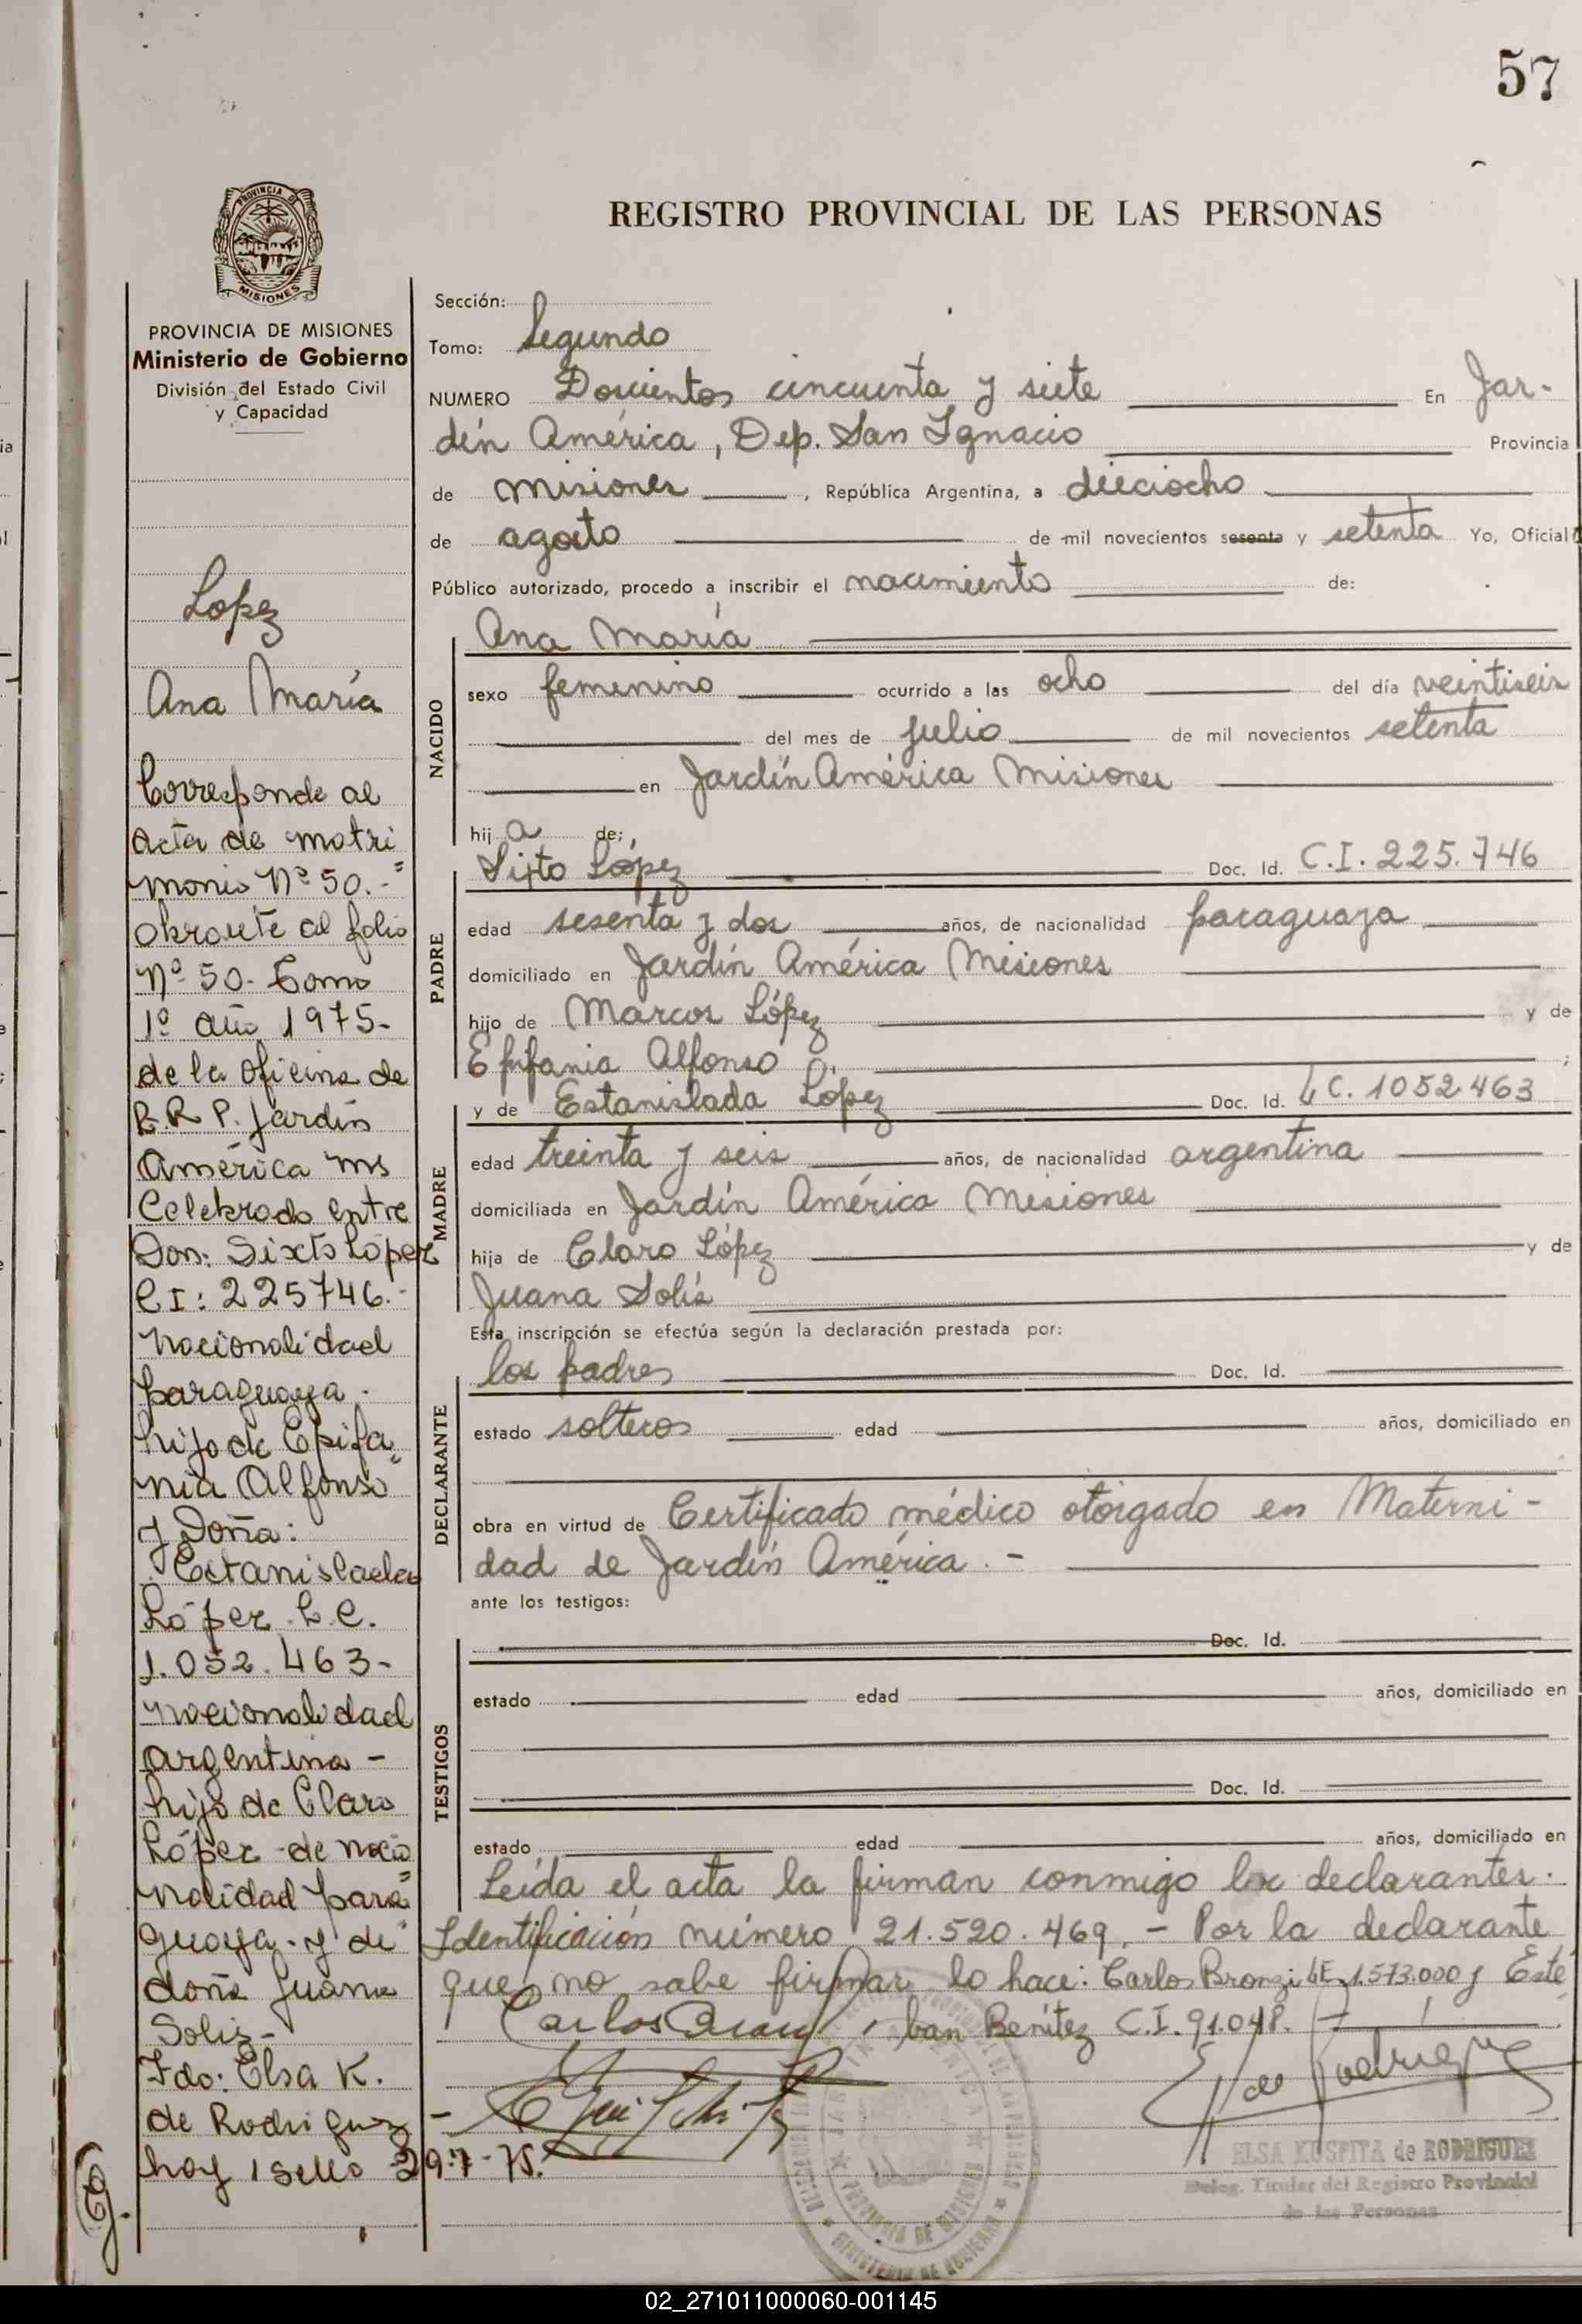 57
PROVINCIA DE
MISIONES
REGISTRO PROVINCIAL DE LAS PERSONAS
PROVINCIA DE MISIONES
Ministerio de Gobierno
División del Estado Civil
y Capacidad
Lopez
Ana María
Corresponde al
acta de matri
monio Nº 50.-
obrante al folio
Nº 50- Tomo
1º año 1975-
de la oficina de
R.R P. Jardín
América Ms
Celebrado entre
Don: Sixto López
CI: 225746.-
Nacionalidad
paraguaya.
hijo de Epifa
nia Alfonso
y Doña:
Estanislada
López L.C.
1.052.463-
nacionalidad
argentina -
hijo de Claro
López -de nacio
nalidad para
guaya- y de
doña Juana
Solis-
Fdo: Elsa K.
de Rodriguez
hay 1 sello 29-7-75.
Sección:
Tomo: Segundo
NUMERO Doscientos cincuenta y siete En Jar-
dín América, Dep. San Ignacio Provincia
de Misiones, República Argentina, a dieciocho
de agosto de mil novecientos sesenta y setenta Yo, Oficial
Público autorizado, procedo a inscribir el nacimiento de:
NACIDO
Ana María
sexo femenino ocurrido a las ocho del día veintiseis
del mes de julio de mil novecientos setenta
en Jardín América Misiones
hij a de:
PADRE
Sixto López Doc. Id. C.I. 225.746
edad sesenta y dos años, de nacionalidad paraguaya
domiciliado en Jardín América Misiones
hijo de Marcos López y de
Epifania Alfonso ;
MADRE
y de Estanislada López Doc. Id. L C. 1052463
edad treinta y seis años, de nacionalidad argentina
domiciliada en Jardín América Misiones
hija de Claro López y de
Juana Solís
Esta inscripción se efectúa según la declaración prestada por:
DECLARANTE
los padres Doc. Id.
estado solteros edad años, domiciliado en
obra en virtud de Certificado médico otorgado en Materni-
dad de Jardín América.-
ante los testigos:
TESTIGOS
Doc. Id.
estado edad años, domiciliado en
Doc. Id.
estado edad años, domiciliado en
Leída el acta la firman conmigo los declarantes.
Identificación número 21.520.469.- Por la declarante
que no sabe firmar lo hace: Carlos Bronzi LE. 1.573.000 y Esté
ban Benítez C.I. 91.048.
Carlos
ELSA KUSPITA de RODRIGUEZ
Deleg. Titular del Registro Provincial
de las Personas
PROVINCIA DE MISIONES
02_271011000060-001145